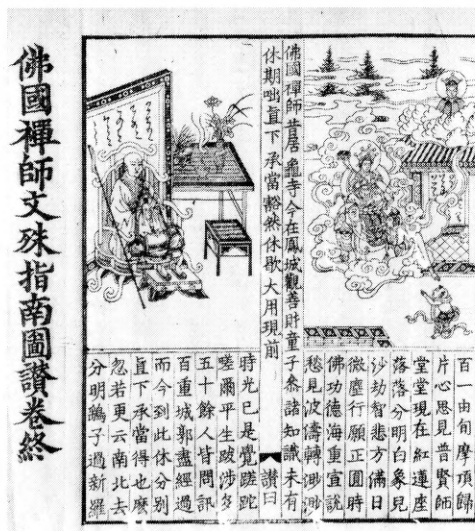 百一由旬摩頂歸
片心思見普賢師
堂堂現在紅蓮座
落落分明白象兒
沙劫智悲方滿日
微塵行願正圓時
佛功德海重宣說
愁見波濤轉渺瀰
佛國禪師昔居龜寺今在鳳城觀善財童子參諸知識未有
休期咄直下承當豁然休歇大用現前 讚曰
時光已是覺蹉跎
嗟爾平生跋涉多
五十餘人皆問訊
百重城郭盡經過
而今到此休分別
直下承當得也麽
忽若更云南北去
分明鷂子過新羅
佛國禪師文殊指南圖讚卷終